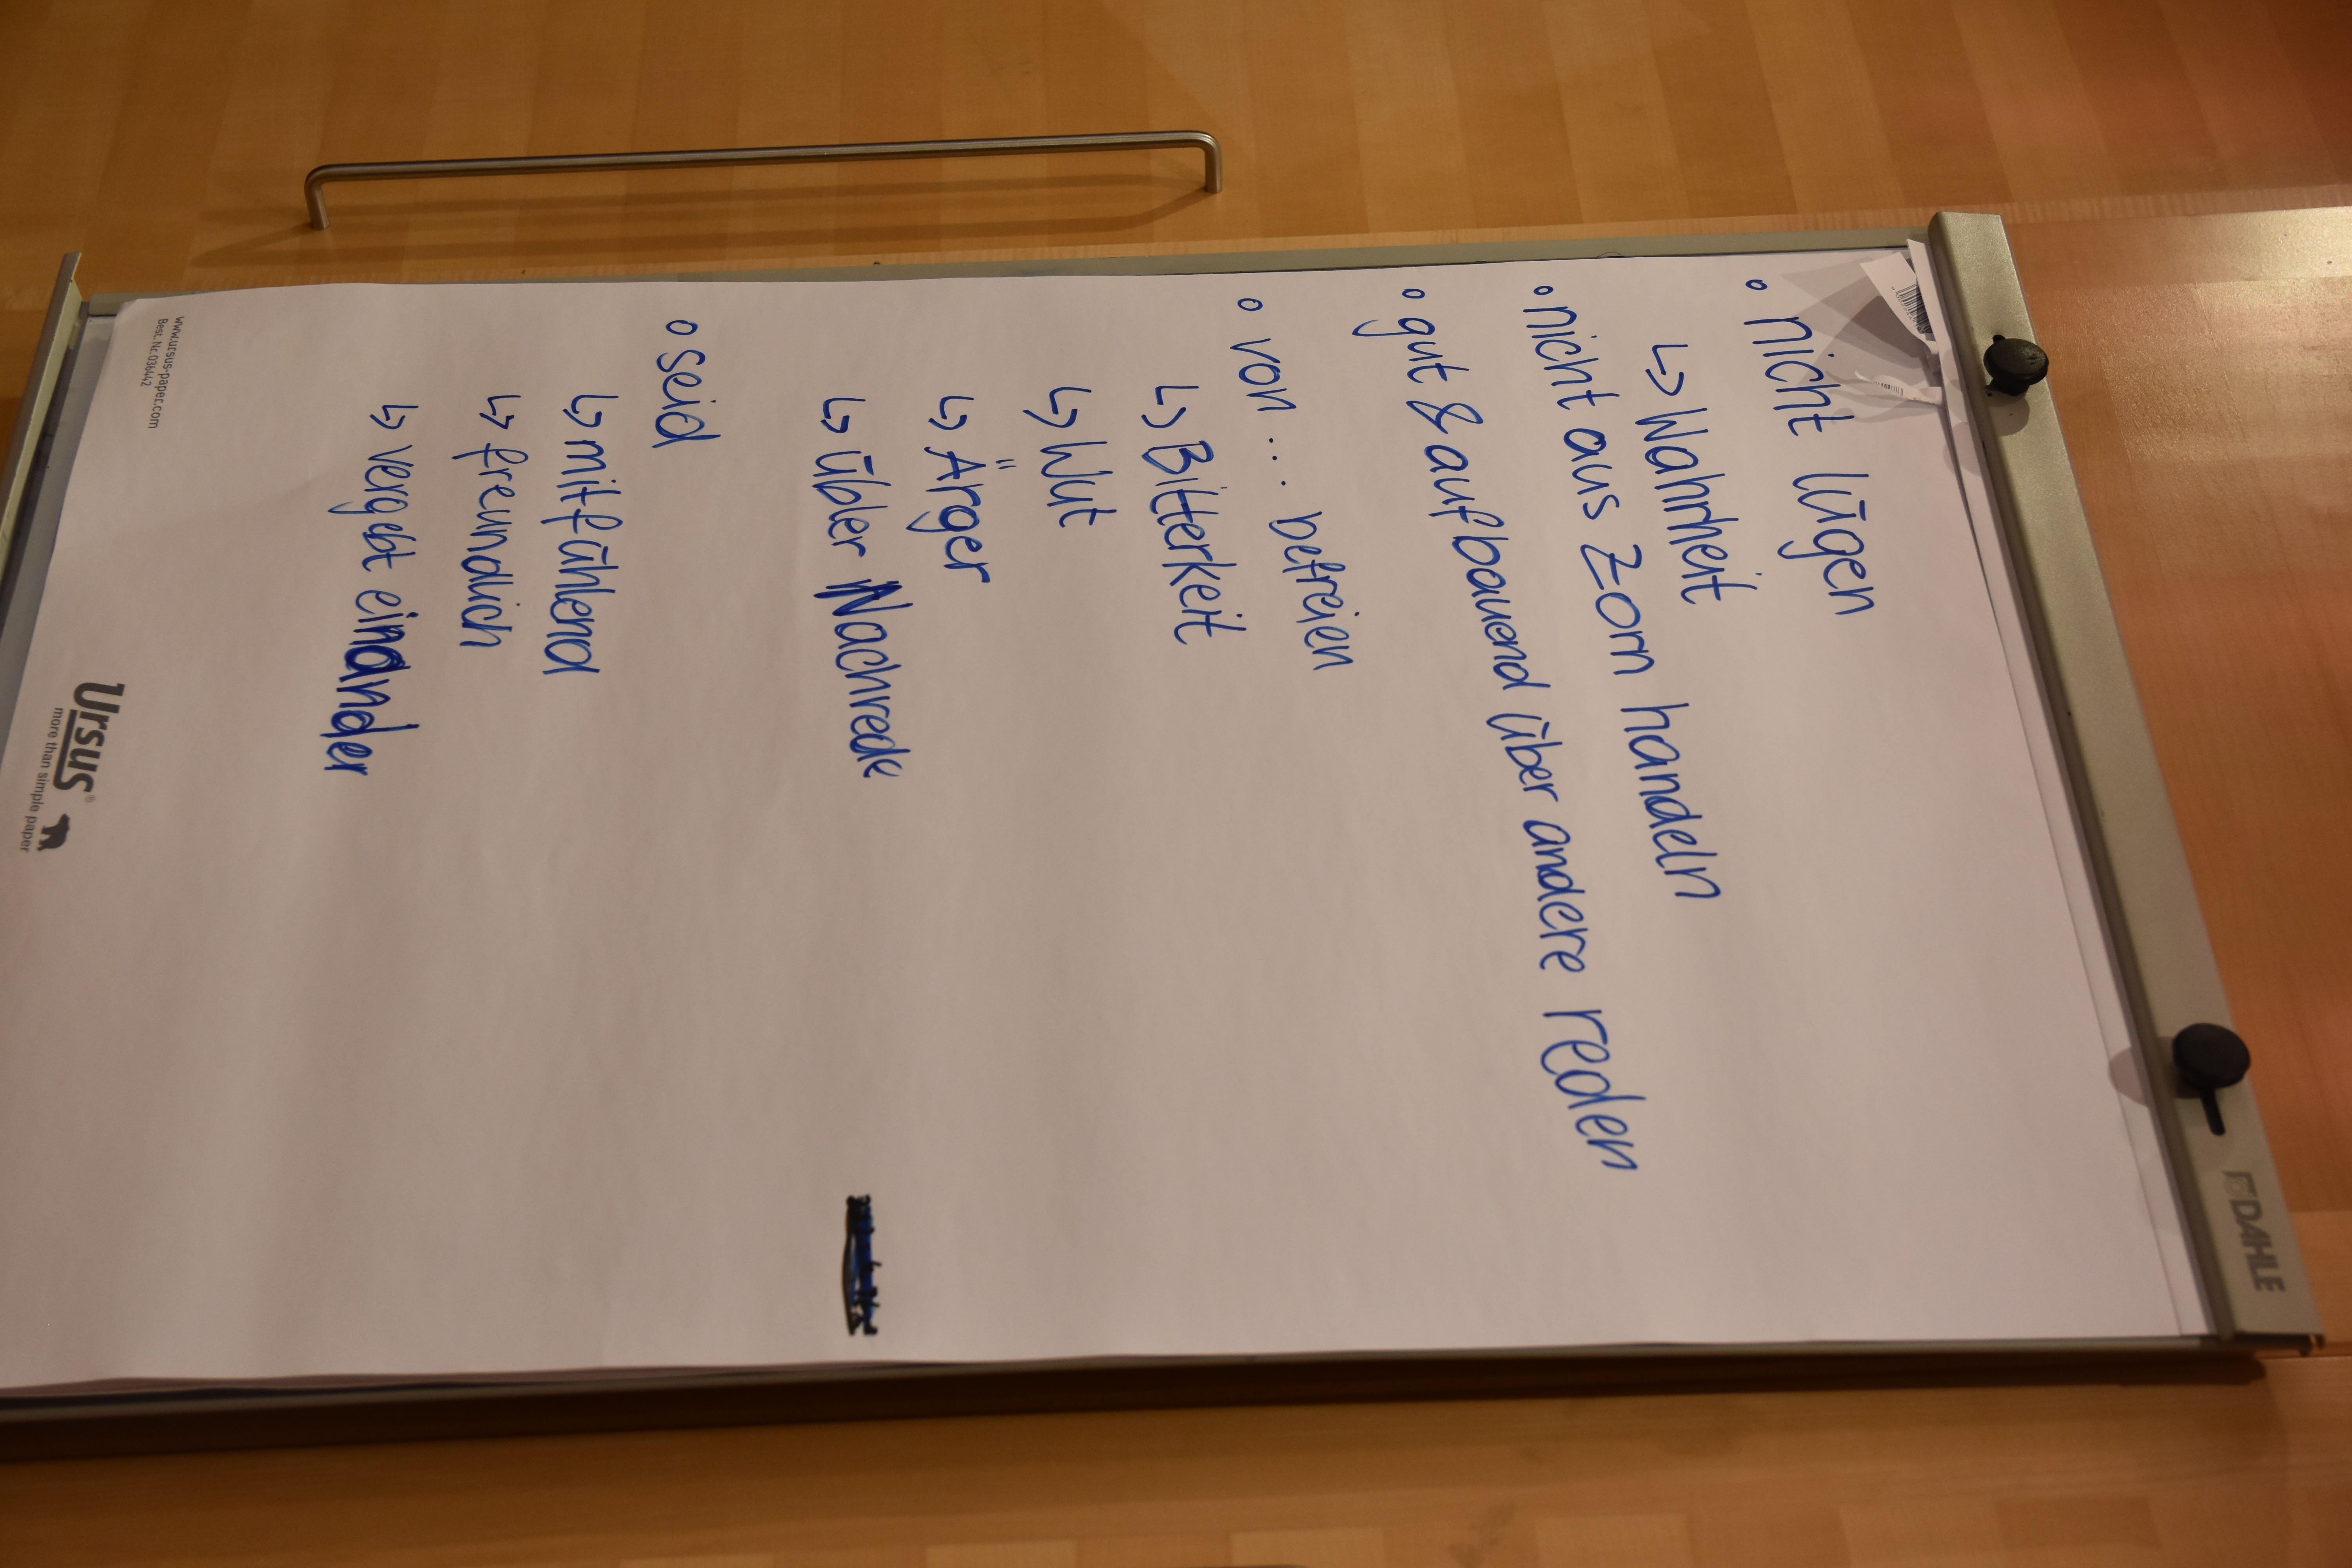 DAHLE
° nicht lügen
↳ Wahrheit
° nicht aus Zorn handeln
° gut & aufbauend über andere reden
° von ... befreien
↳ Bitterkeit
↳ Wut
↳ Ärger
↳ übler Nachrede
° seid
↳ mitfühlend
↳ freundlich
↳ vergebt einander
www.ursus-paper.com
Best.-Nr. 036442
Ursus®
more than simple paper